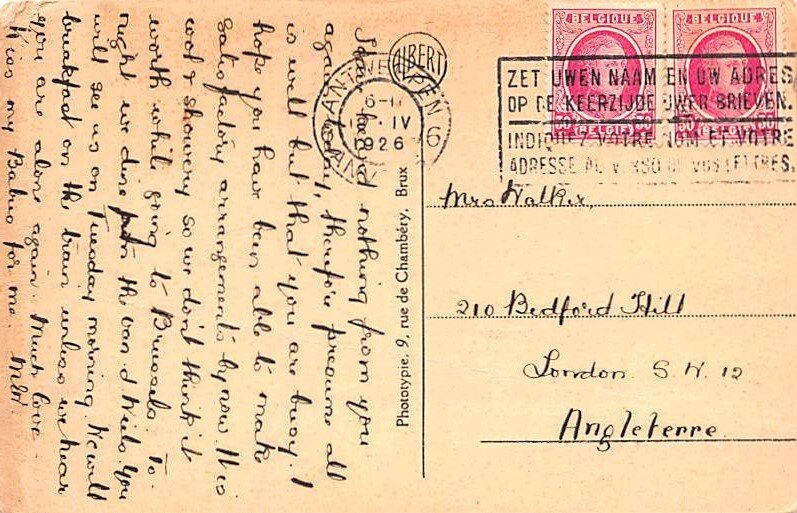 Have heard nothing from you
again today, therefore presume all
is well but that you are busy. I
hope you have been able to make
satisfactory arrangements by now. It is
wet & showery so we don't think it
worth while going to Brussels. To-
night we dine with the Van d Wiels. You
will see us on Tuesday morning. We will
breakfast on the train unless we hear
you are alone again. Much love.
Kiss my Babies for me.
ALBERT
Phototypie, 9, rue de Chambéry, Brux
ANTWERPEN 6
IV
1926
BELGIQUE
BELGIË
BELGIQUE
BELGIË
ZET UWEN NAAM EN UW ADRES
OP DE KEERZIJDE UWER BRIEVEN.
INDIQUEZ VOTRE NOM ET VOTRE
ADRESSE AU VERSO DE VOS LETTRES.
Mrs Walker,
210 Bedford Hill
London. S. W. 12
Angleterre